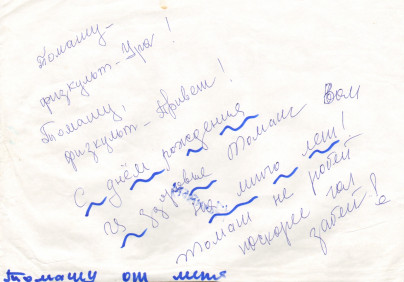 Томашу –
физкульт – Ура!
Томашу,
физкульт – Привет!
С днём рождения
Томаш Вам
из здоровье на много лет!
Томаш не робей
поскорее гол
забей!
Томашу от метя